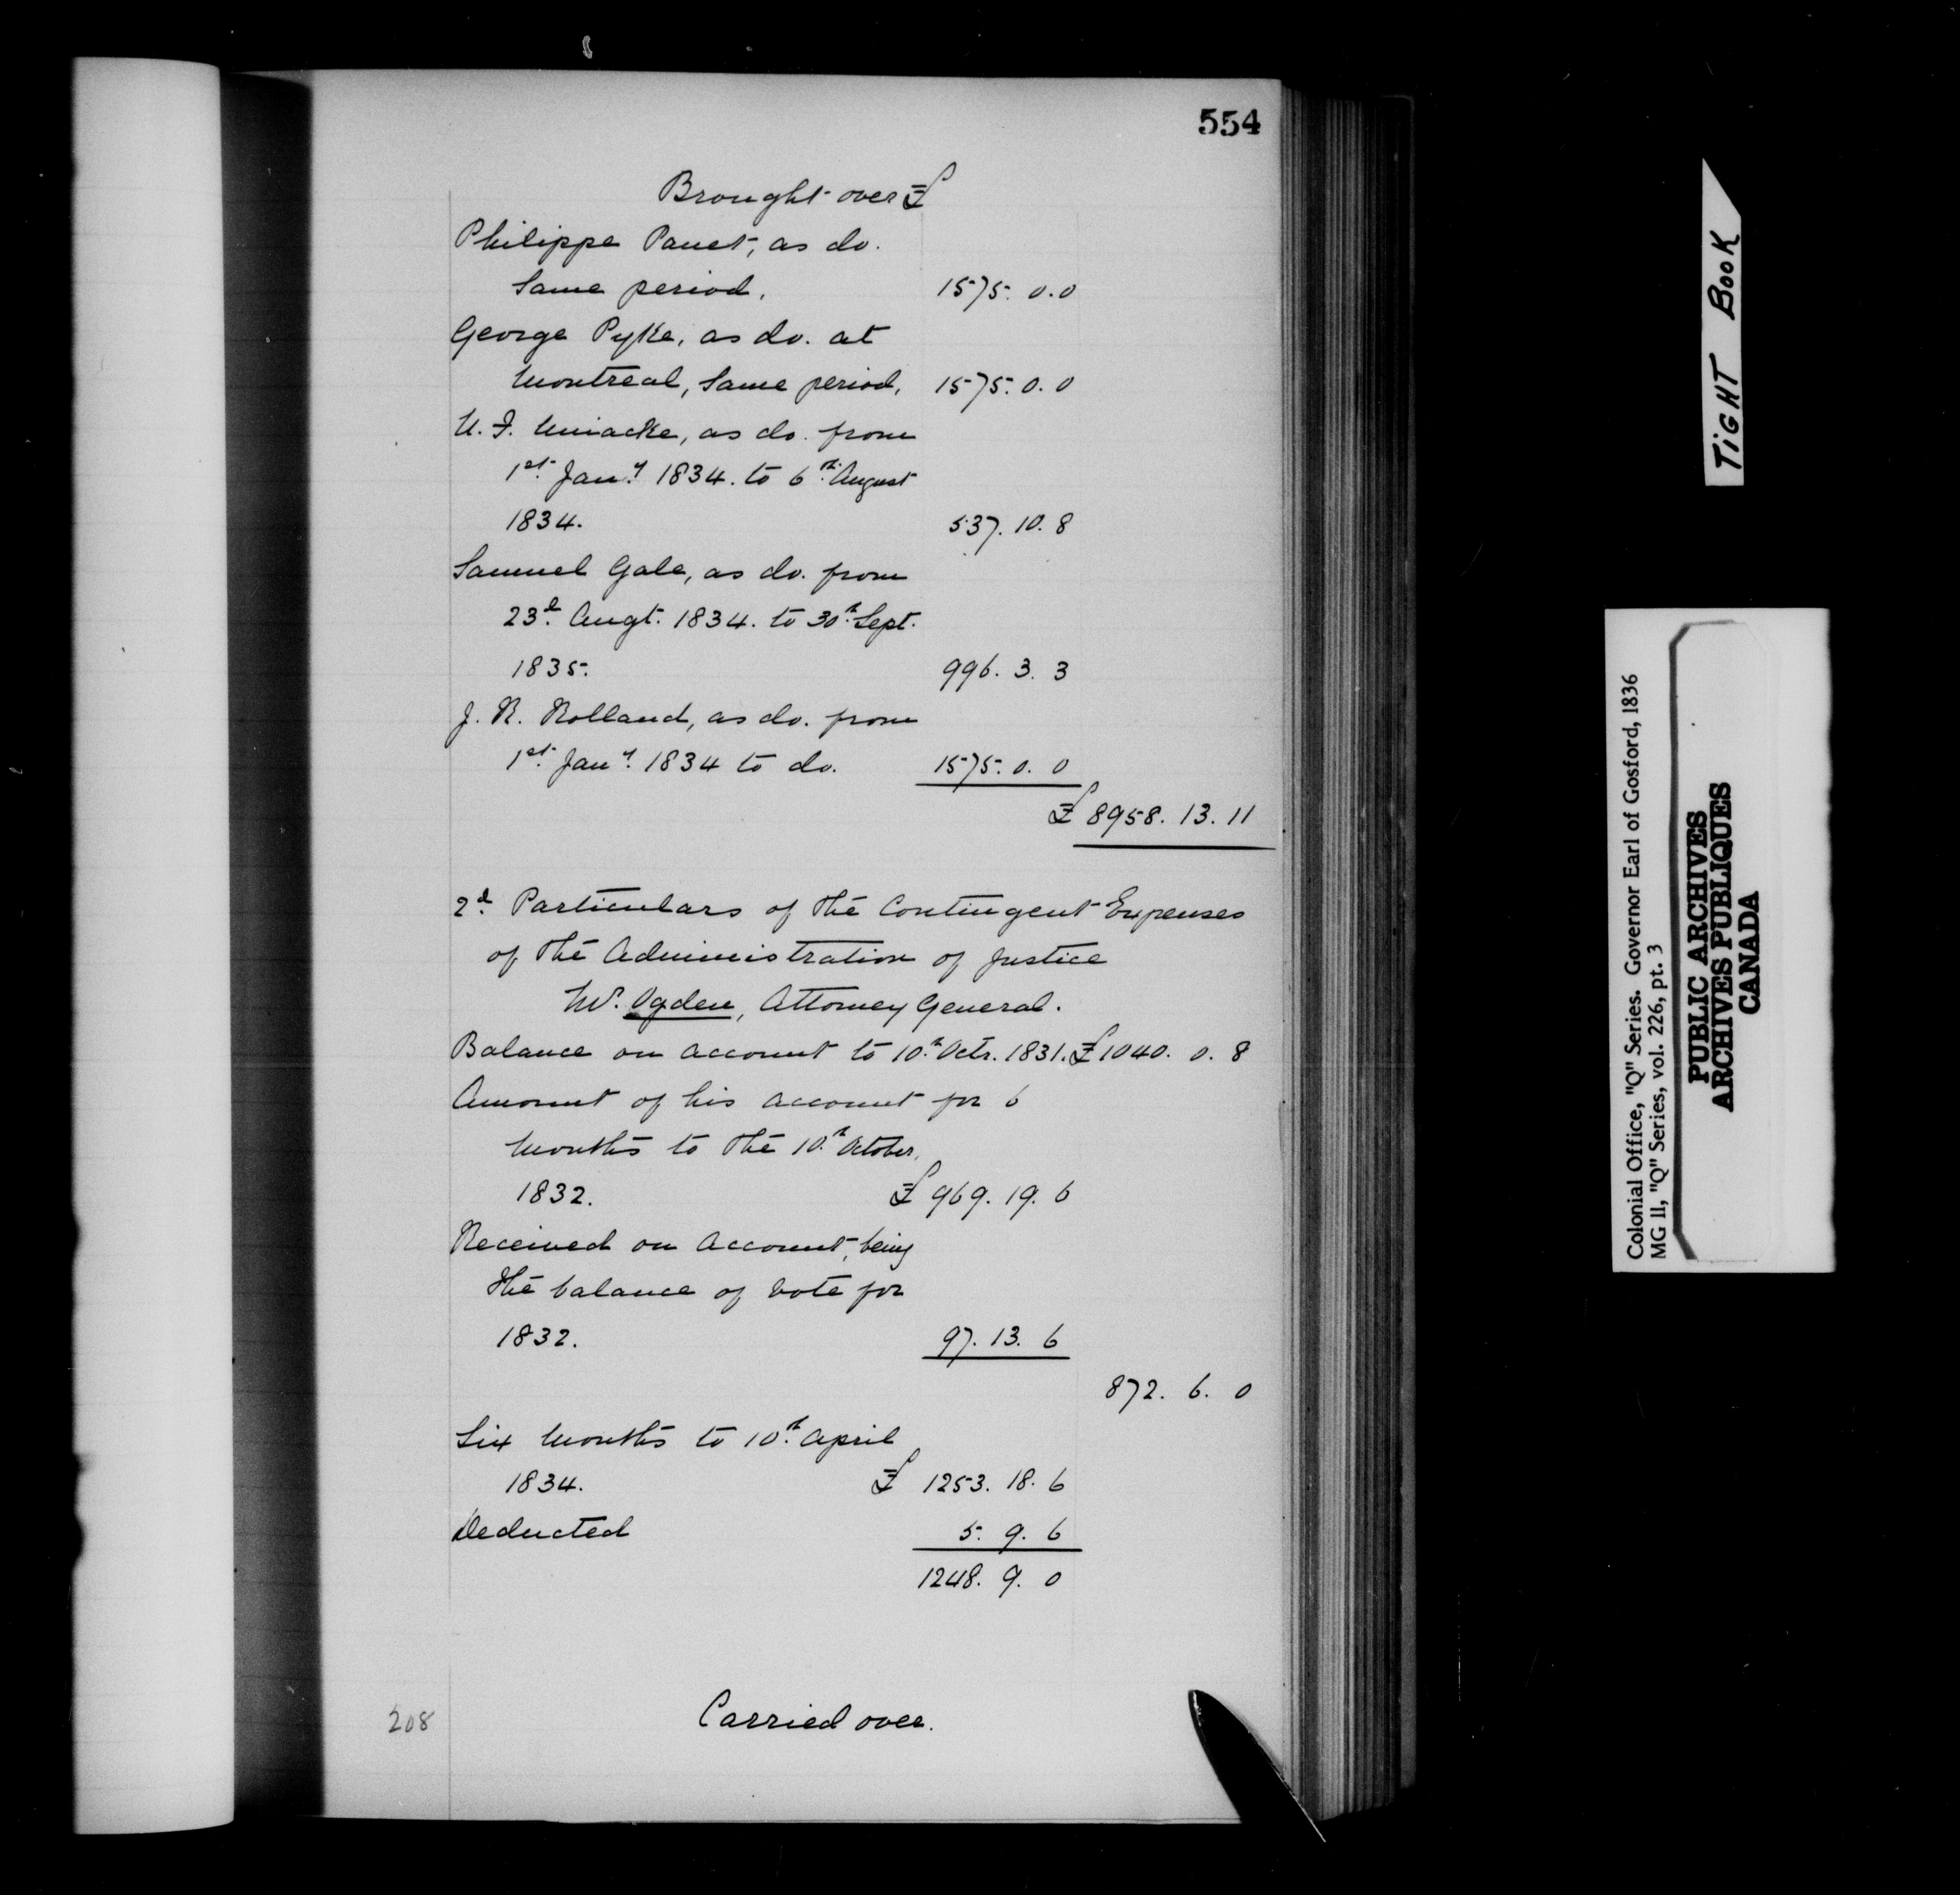 554
Brought over £
Philippe Panet, as do.
Same period. 1575. 0. 0
George Pyke, as do. at
Montreal, Same period, 1575. 0. 0
N. F. Uniacke, as do. from
1st Jany 1834. to 6th August
1834. 537. 10. 8
Samuel Gale, as do. from
23d Augt. 1834. to 30th Sept.
1835. 996. 3. 3
J. R. Rolland, as do. from
1st Jany. 1834 to do. 1575. 0. 0
£ 8958. 13. 11
2d Particulars of the Contingent Expenses
of the Administration of Justice
Mr. Ogden, Attorney General.
Balance on account to 10th Octr. 1831. £ 1040. 0. 8
Amount of his account for 6
months to the 10th October,
1832. £ 969. 19. 6
Received on Account, being
the balance of vote for
1832. 97. 13. 6
872. 6. 0
Six months to 10th April
1834. £ 1253. 18. 6
Deducted 5. 9. 6
1248. 9. 0
Carried over.
208
TiGHT BOOK
Colonial Office, "Q" Series. Governor Earl of Gosford, 1836
MG 11, "Q" Series, vol. 226, pt. 3
PUBLIC ARCHIVES
ARCHIVES PUBLIQUES
CANADA